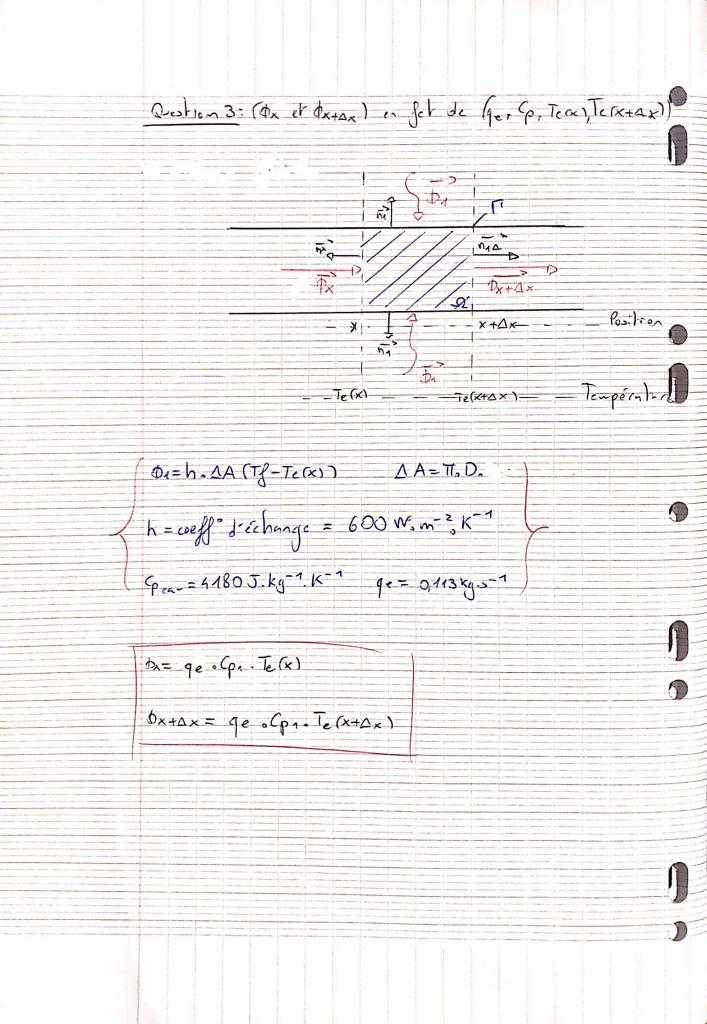 Question 3: (Φx et Φx+Δx) en fct de (qe, Cp, Te(x), Te(x+Δx))
Φ1
n1
Γ
nx
n1Δ
Φx
Φx+Δx
Ω
x
x+Δx
Position
n1
Φ1
Te(x)
Te(x+Δx)
Température
Φ1 = h. ΔA (Tf - Te(x)) ΔA = π. D.
h = coeff° d'échange = 600 W. m⁻². K⁻¹
Cp eau = 4180 J. kg⁻¹. K⁻¹ qe = 0,113 kg.s⁻¹
Φx = qe . Cp1 . Te(x)
Φx+Δx = qe . Cp1 . Te(x+Δx)